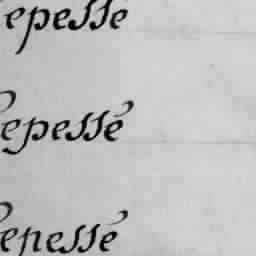 epesse
epessé
epessé